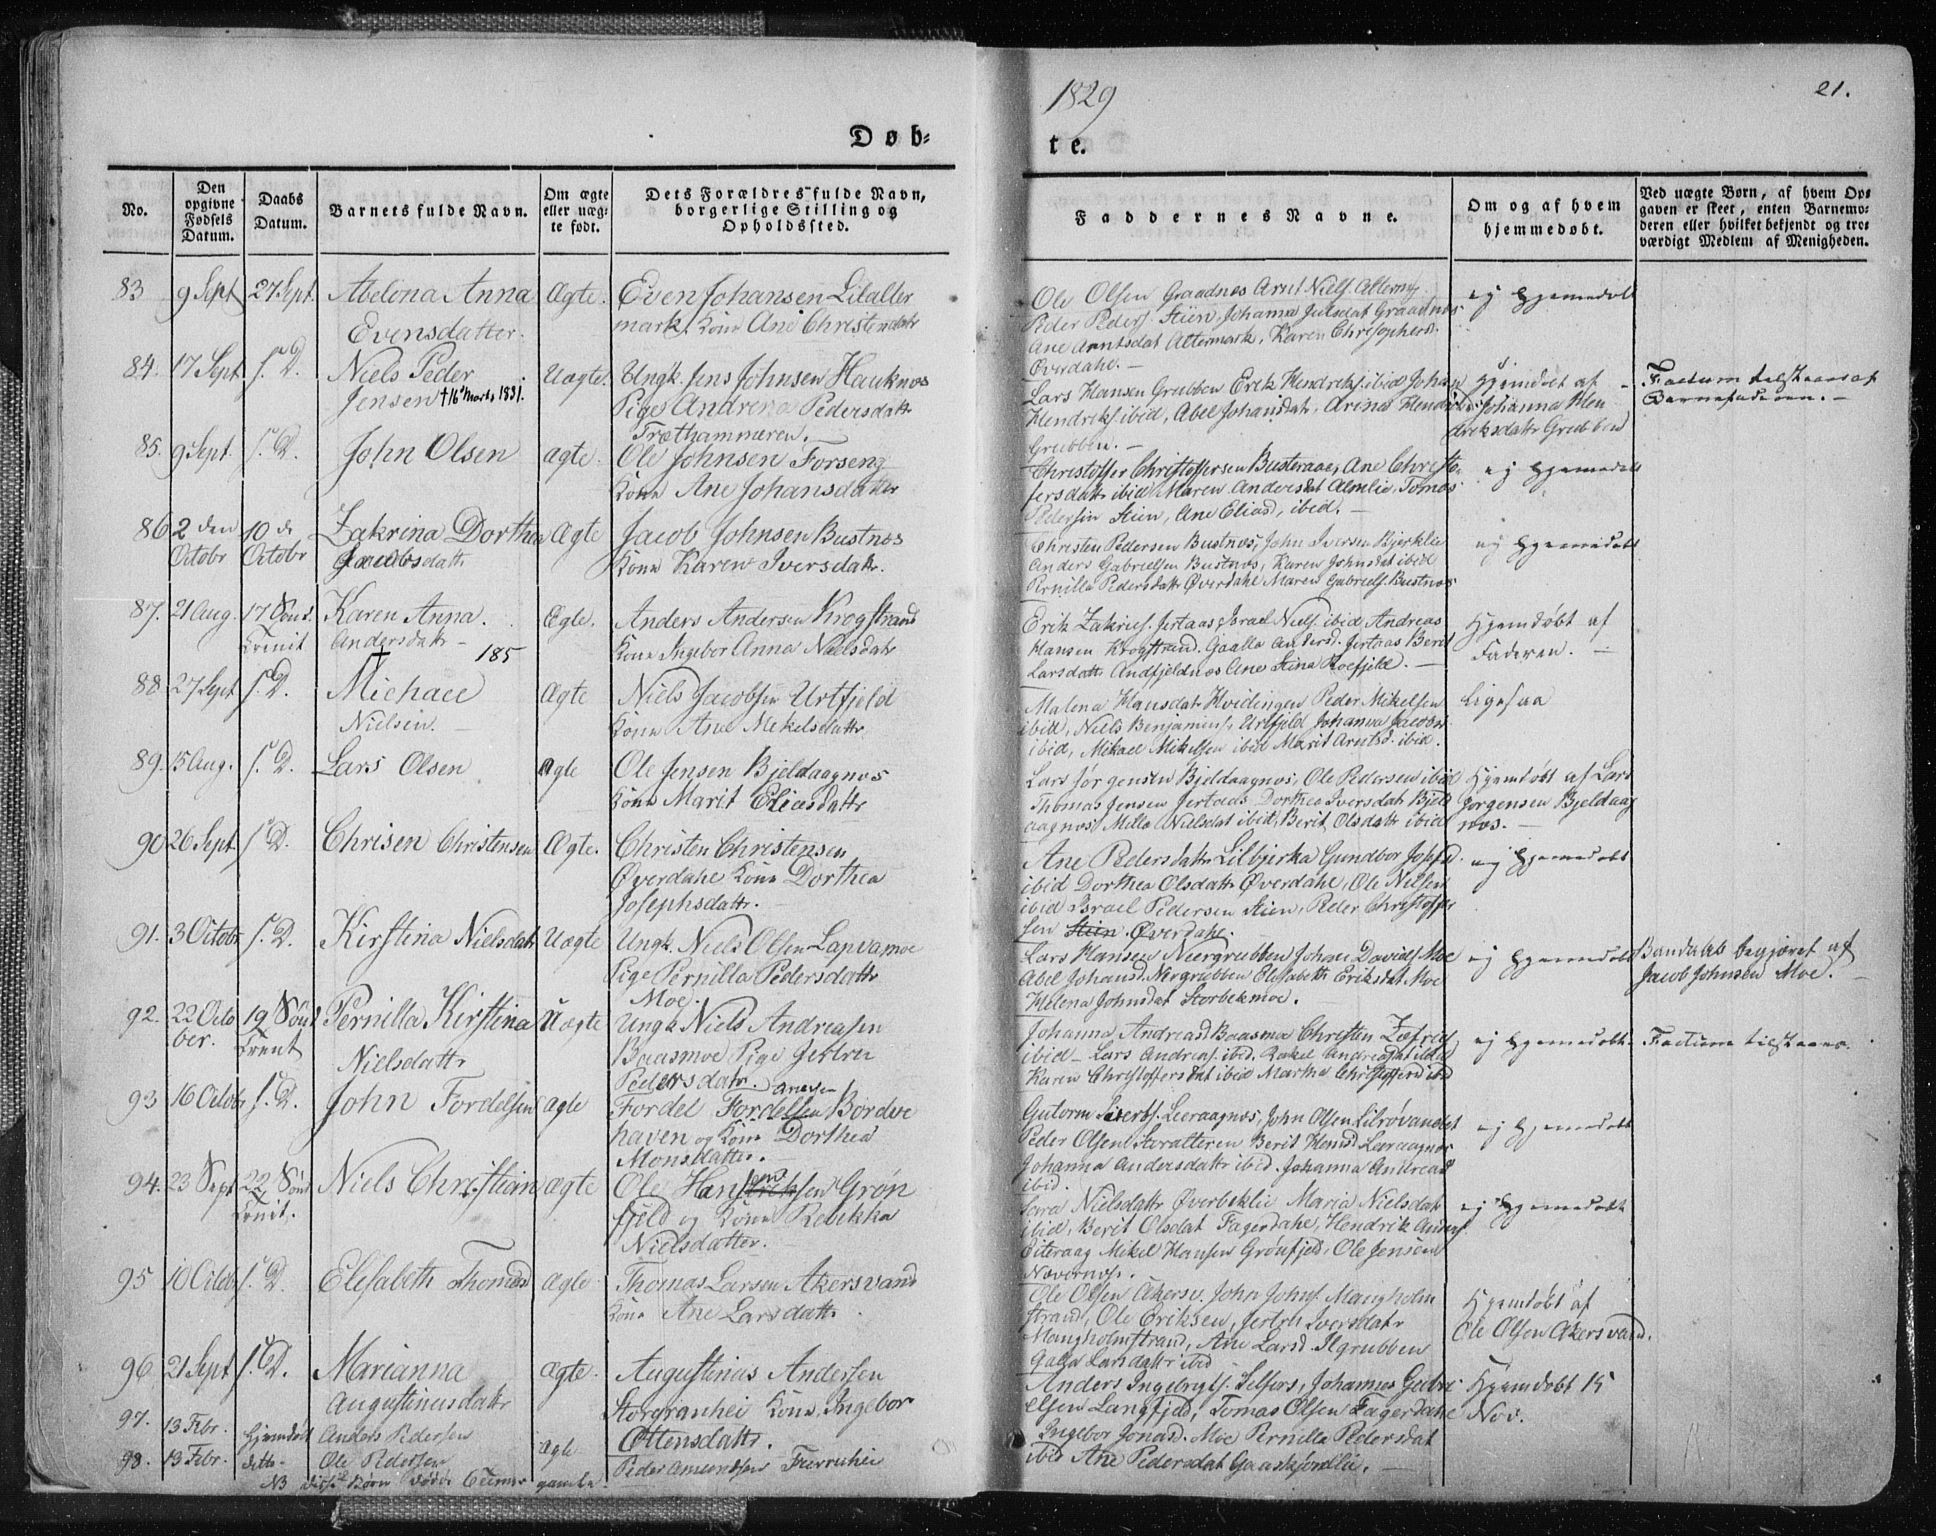 1829
21.
Døb-
te.
No.
Den opgivne Fødsels Datum.
Daabs Datum.
Barnets fulde Navn.
Om ægte eller uægte født.
Dets Forældres fulde Navn, borgerlige Stilling og Opholdssted.
Faddernes Navne.
Om og af hvem hjemmedøbt.
Ved uægte Børn, af hvem Opgaven er skeet, enten Barnemoderen eller hvilket bekjendt og troværdigt Medlem af Menigheden.
83 9 Sept 27 Sept. Abelona Anna Ægte. Even Johansen Lilaller
Evensdatter. mark, Kone Ane Christendatr
Ole Olsen Graadnes Arnt Niels. Altermj.
Peder Peders. Stien, Johanna Julsdat Graadnes
Ane Arntsdat Altermark, Karen Christophers.
Øverdahl.
ej hjemedøbt
84. 17 Sept. s. D. Niels Peder Uægte. Ungk. Jens Johnsen Hauknes
Jensen † 16 Marts 1831. Pige Andrena Pedersdatr
Træthammeren.
Lars Hansen Grubben Erik Hendriks. ibid Johan
Hendriks. ibid, Abel Johansdat, Arina Hendri
Grubben.
Hjemdøbt af
Johanna Hen
driksdatr Grubben
Factum tilstaaes af
Barnefaderen.
85. 9 Sept. s. D. John Olsen ægte. Ole Johnsen Forseng
Kone Ane Johansdatter
Christoffer Christoffersen Busteraae, Ane Christo
fersdatr ibid Maren Andersdat Almlie, Tomas
Pedersen Stien, Ane Eliasd, ibid.
ej hjemedøbt
86 2 den 10 de Zakrina Dorthea Ægte Jacob Johnsen Bustnes
Octobr Octobr Jacobsdatr Kone Karen Iversdatr.
Christen Pedersen Bustnes, John Iversen Bjerklie
Anders Gabrielsen Bustnes, Karen Johnsdat ibid
Pernilla Pedersdatr Øverdahl Maren Gabriels. Bustnes
ej hjemedøbt
87. 21 Aug. 17 Sønd. Karen Anna. Ægte. Anders Andersen Krogstrand
Trinit Andersdatr Kone Ingebor Anna Nielsdatr
185
Erik Zakries. Jertaas, Israel Niels. ibid Andreas
Hansen Krogstrand. Gaalla Andersd. Jertaas Beret
Larsdatr Andfjeldnes Ane Stina Roefjeld.
Hjemdøbt af
Faderen.
88. 27 Sept s. D. Michael Ægte Niels Jacobsen Urtfjeld
Nielsen. Kone Ane Mekelsdatr.
Malena Hansdatr Hvidingen Peder Mikelsen
ibid, Niels Benjamins. Urtfjeld Johanna Jacobs
ibid, Mikael Mikelsen ibid Marit Arntsd. ibid.
Ligesaa
89. 15 Aug. s. D. Lars Olsen ægte Ole Jensen Bjeldaagnes
Kone Marit Eliasdatr
Lars Jørgensen Bjeldaagnes, Ole Pedersen ibid
Thomas Jensen Jertaas Dorthea Iversdat Bjeld
aagnes, Milla Nielsdat ibid, Berit Olsdatr ibid
Hjemdøbt af Lars
Jørgensen Bjeldaag
nes.
90 26 Sept. s. D. Chrisen Christensen Ægte. Christen Christensen
Øverdahl Kone Dorthea
Josephsdatr.
Ane Pedersdatr Lilbjerka Gundbor Josefsd.
ibid Dorthea Olsdatr Øverdahl, Ole Nilsen
ibid Israel Pedersen Stien, Peder Christoffer
sen Stien Øverdahl.
ej hjemedøbt
91. 3 Octobr s. D. Kirstina Nielsdatr Uægte Ungk. Niels Olsen Lapvamoe
Pige Pernilla Pedersdatr
Moe.
Lars Hansen Niergrubben Johan Davids. Moe
Abel Johansd. Niergrubben Elisabeth Eriksdat. Moe
Helena Johnsdat Storbekmoe.
ej hjemmedøbt
Bandaab begjæret af
Jacob Johnsen Moe.
92. 22 Octo 19 Sønd Pernilla Kirstina Uægte Ungk Niels Andreasen
ber. Trenit Nielsdatr Baasmoe Pige Jertru
Pedersdatr.
Johanna Andreasd Baasmo Christen Zefries
ibid Lars Andreas. ibid. Rakel Andreasdat ibid
Karen Christoffersdat ibid Martha Christofferd ibid
ej hjemedøbt.
Factum tilstaaes.
93 16 Octobr s. D. John Fordelsen ægte Fordel Fordelsen Bordve
haven og Kone Dorthea
Monsdatter.
Gutorm Sierts. Leeraagnes, John Olsen Lilrøvandet
Peder Olsen Svratteren Berit Hansd Leeraagnes
Johanna Andersdatr ibid. Johanna Andreasd
ibid.
ej hjemedøbt
94. 23 Sept 22 Sønd Niels Christian ægte Ole Hansen Grøn
Trenit. fjeld og Kone Rebekka
Nielsdatter.
Sara Nielsdatr Øverbeklie Maria Nielsdatr
ibid, Berit Olsdat Fagerdahl, Hendrik Anders.
Eiteraag Mikel Hansen Grønfjeld, Ole Jensen
Nævernes.
ej hjemedøbt
95 10 Octobr s. D. Elesabeth Thomasd Ægte Thomas Larsen Akersvand
Kone Ane Larsdatr
Ole Olsen Akersv. John Johns. Mangholm
strand, Ole Eriksen, Jertrh Iversdatr
Mangholmstrand, Ane Larsd Ilgrubben
Galla Larsdatr ibid
Hjemdøbt af
Ole Olsen Akersvand.
96 21 Sept s. D. Marianna Ægte. Augustinus Andersen
Augustinusdatr Storgranhei Kone Ingebor
Ottensdatr.
Anders Ingebrigts. Selfors, Johannes Gabri
elsen Langfjeld, Tomas Olsen Fagerdahl
Ingebor Jonasd. Moe Pernilla Pedersdat
ibid Ane Pedersdat Gaaskjønlie.
Hjemdøbt 15
Nov.
97. 13 Febr. Hjemdøbt Anders Pedersen
98. 13 Febr. ditto Ole Pedersen Ægte Peder Amundsen
NB disse Børn døde gamle